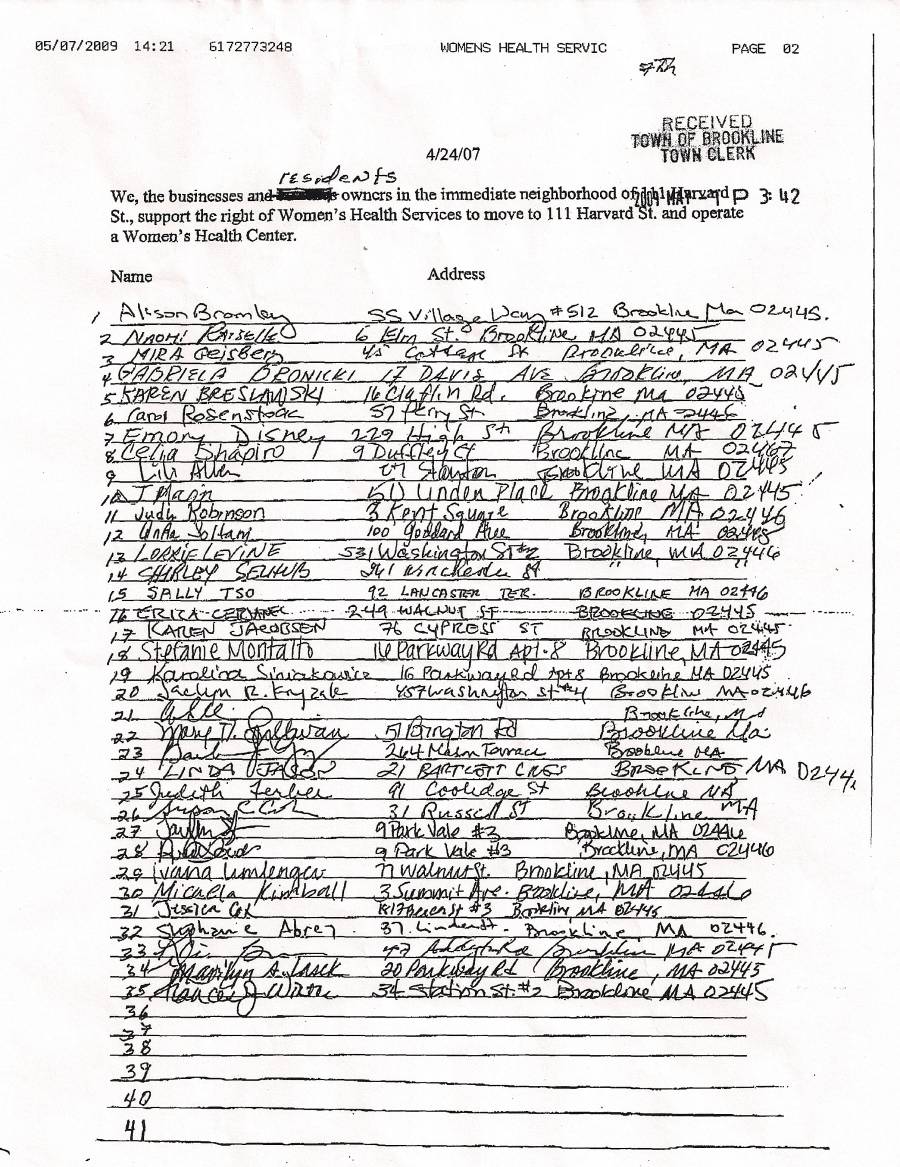 05/07/2009 14:21 6172773248 WOMENS HEALTH SERVIC PAGE 02
7th
RECEIVED
TOWN OF BROOKLINE
TOWN CLERK
4/24/07
residents
We, the businesses and owners in the immediate neighborhood of 111 Harvard
2009 MAY P 3:42
St., support the right of Women's Health Services to move to 111 Harvard St. and operate
a Women's Health Center.
Name Address
1 Alison Bromley 55 Village Way #512 Brookline Ma 02445.
2 NAOMI 6 Elm St. Brookline, MA 02445
3 MIRA Geisberg 45 Cottage St Brookline, MA 02445
4 GABRIELA BRONICKI 17 DAVIS AVE Brookline, MA 02445
5 KAREN BRESLAWSKI 16 Claflin Rd. Brookline Ma 02445
6 Carol Rosenstock 57 Perry St Brookline, MA 2446
7 Emory Disney 229 High St Brookline MA 02445
8 Celia Shapiro 9 Duffley Ct Brookline MA 02467
9 Lili Allen Stanton Brookline MA 02445
10 J Mason 51 Linden Place Brookline MA 02445
11 Judy Robinson 3 Kent Square Brookline MA 02446
12 100 Goddard Ave Brookline, MA 02445
13 LORRIE LEVINE 531 Washington St #2 Brookline, MA 02446
14 SHIRLEY SELHUB 241 Winchester St " "
15 SALLY TSO 92 LANCASTER TER. BROOKLINE MA 02446
16 ERICA 249 WALNUT ST BROOKLINE 02445
17 KAREN JACOBSEN 76 CYPRESS ST BROOKLINE MA 02445
18 Stefanie Montalto 16 Parkway Rd Apt. 8 Brookline, MA 02445
19 Karolina 16 Parkway Rd Apt 8 Brookline MA 02445
20 Jaclyn R. 857 Washington St #4 Brookline MA 02446
21 Brookline, Ma
22 Mary D. Sullivan 51 Brington Rd Brookline Ma
23 264 Mason Terrace Brookline MA
24 LINDA JASON 21 BARTLETT CRES BROOKLINE, MA 0244
25 Judith Ferber 91 Coolidge St Brookline MA
26 Susan C 31 Russell St Brookline MA
27 9 Park Vale #3 Brookline, MA 02446
28 9 Park Vale #3 Brookline, MA 02446
29 Ivana 77 Walnut St. Brookline, MA 02445
30 Micaela Kimball 3 Summit Ave. Brookline, MA 02446
31 Jessica Cox #3 Brookline MA 02445
32 Stephanie Abrey 37 Linden St. Brookline, MA 02446.
33 42 Addington Rd Brookline MA 02445
34 Marilyn A. 20 Parkway Rd Brookline, MA 02445
35 Frances J 34 Station St. #2 Brookline MA 02445
36
37
38
39
40
41